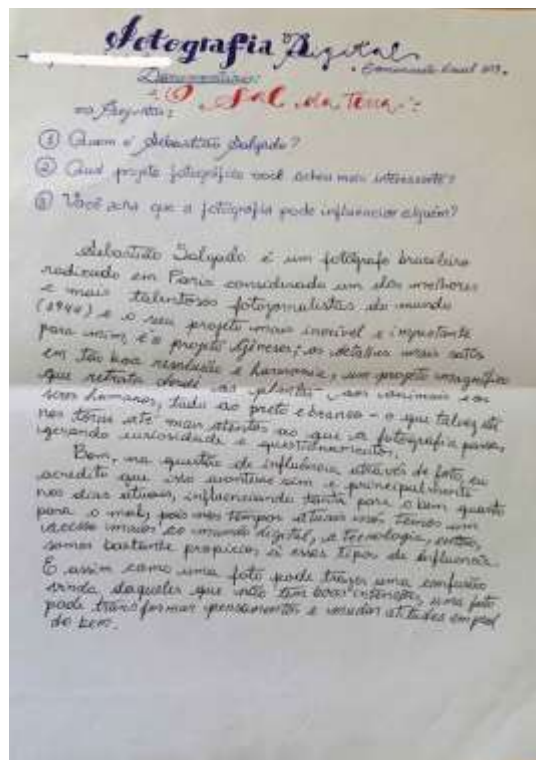 Fotografia Digital
Documentário:
"O Sal da Terra":
Perguntas:
① Quem é Sebastião Salgado?
② Qual projeto fotográfico você achou mais interessante?
③ Você acha que a fotografia pode influenciar alguém?
Sebastião Salgado é um fotógrafo brasileiro
radicado em Paris considerado um dos melhores
e mais talentosos fotojornalistas do mundo
(1944) e o seu projeto mais incrível e impactante
para mim, é o projeto Gêneses; os detalhes mais sutis
em tão boa resolução e harmonia, um projeto magnífico
que retrata desde as plantas aos animais e os
seres humanos, tudo ao preto e branco - o que talvez até
nos torne até mais atentos ao que a fotografia passa,
gerando curiosidade e questionamentos.
Bom, na questão de influência através de foto, eu
acredito que isso acontece sim e principalmente
nos dias atuais, influenciando tanto para o bem quanto
para o mal, pois nos tempos atuais nós temos um
acesso maior ao mundo digital, a tecnologia, então,
somos bastante propícios a esses tipos de influência.
E assim como uma foto pode trazer uma confusão
vinda daqueles que não tem boas intenções, uma foto
pode transformar pensamentos e mudar atitudes em prol
do bem.